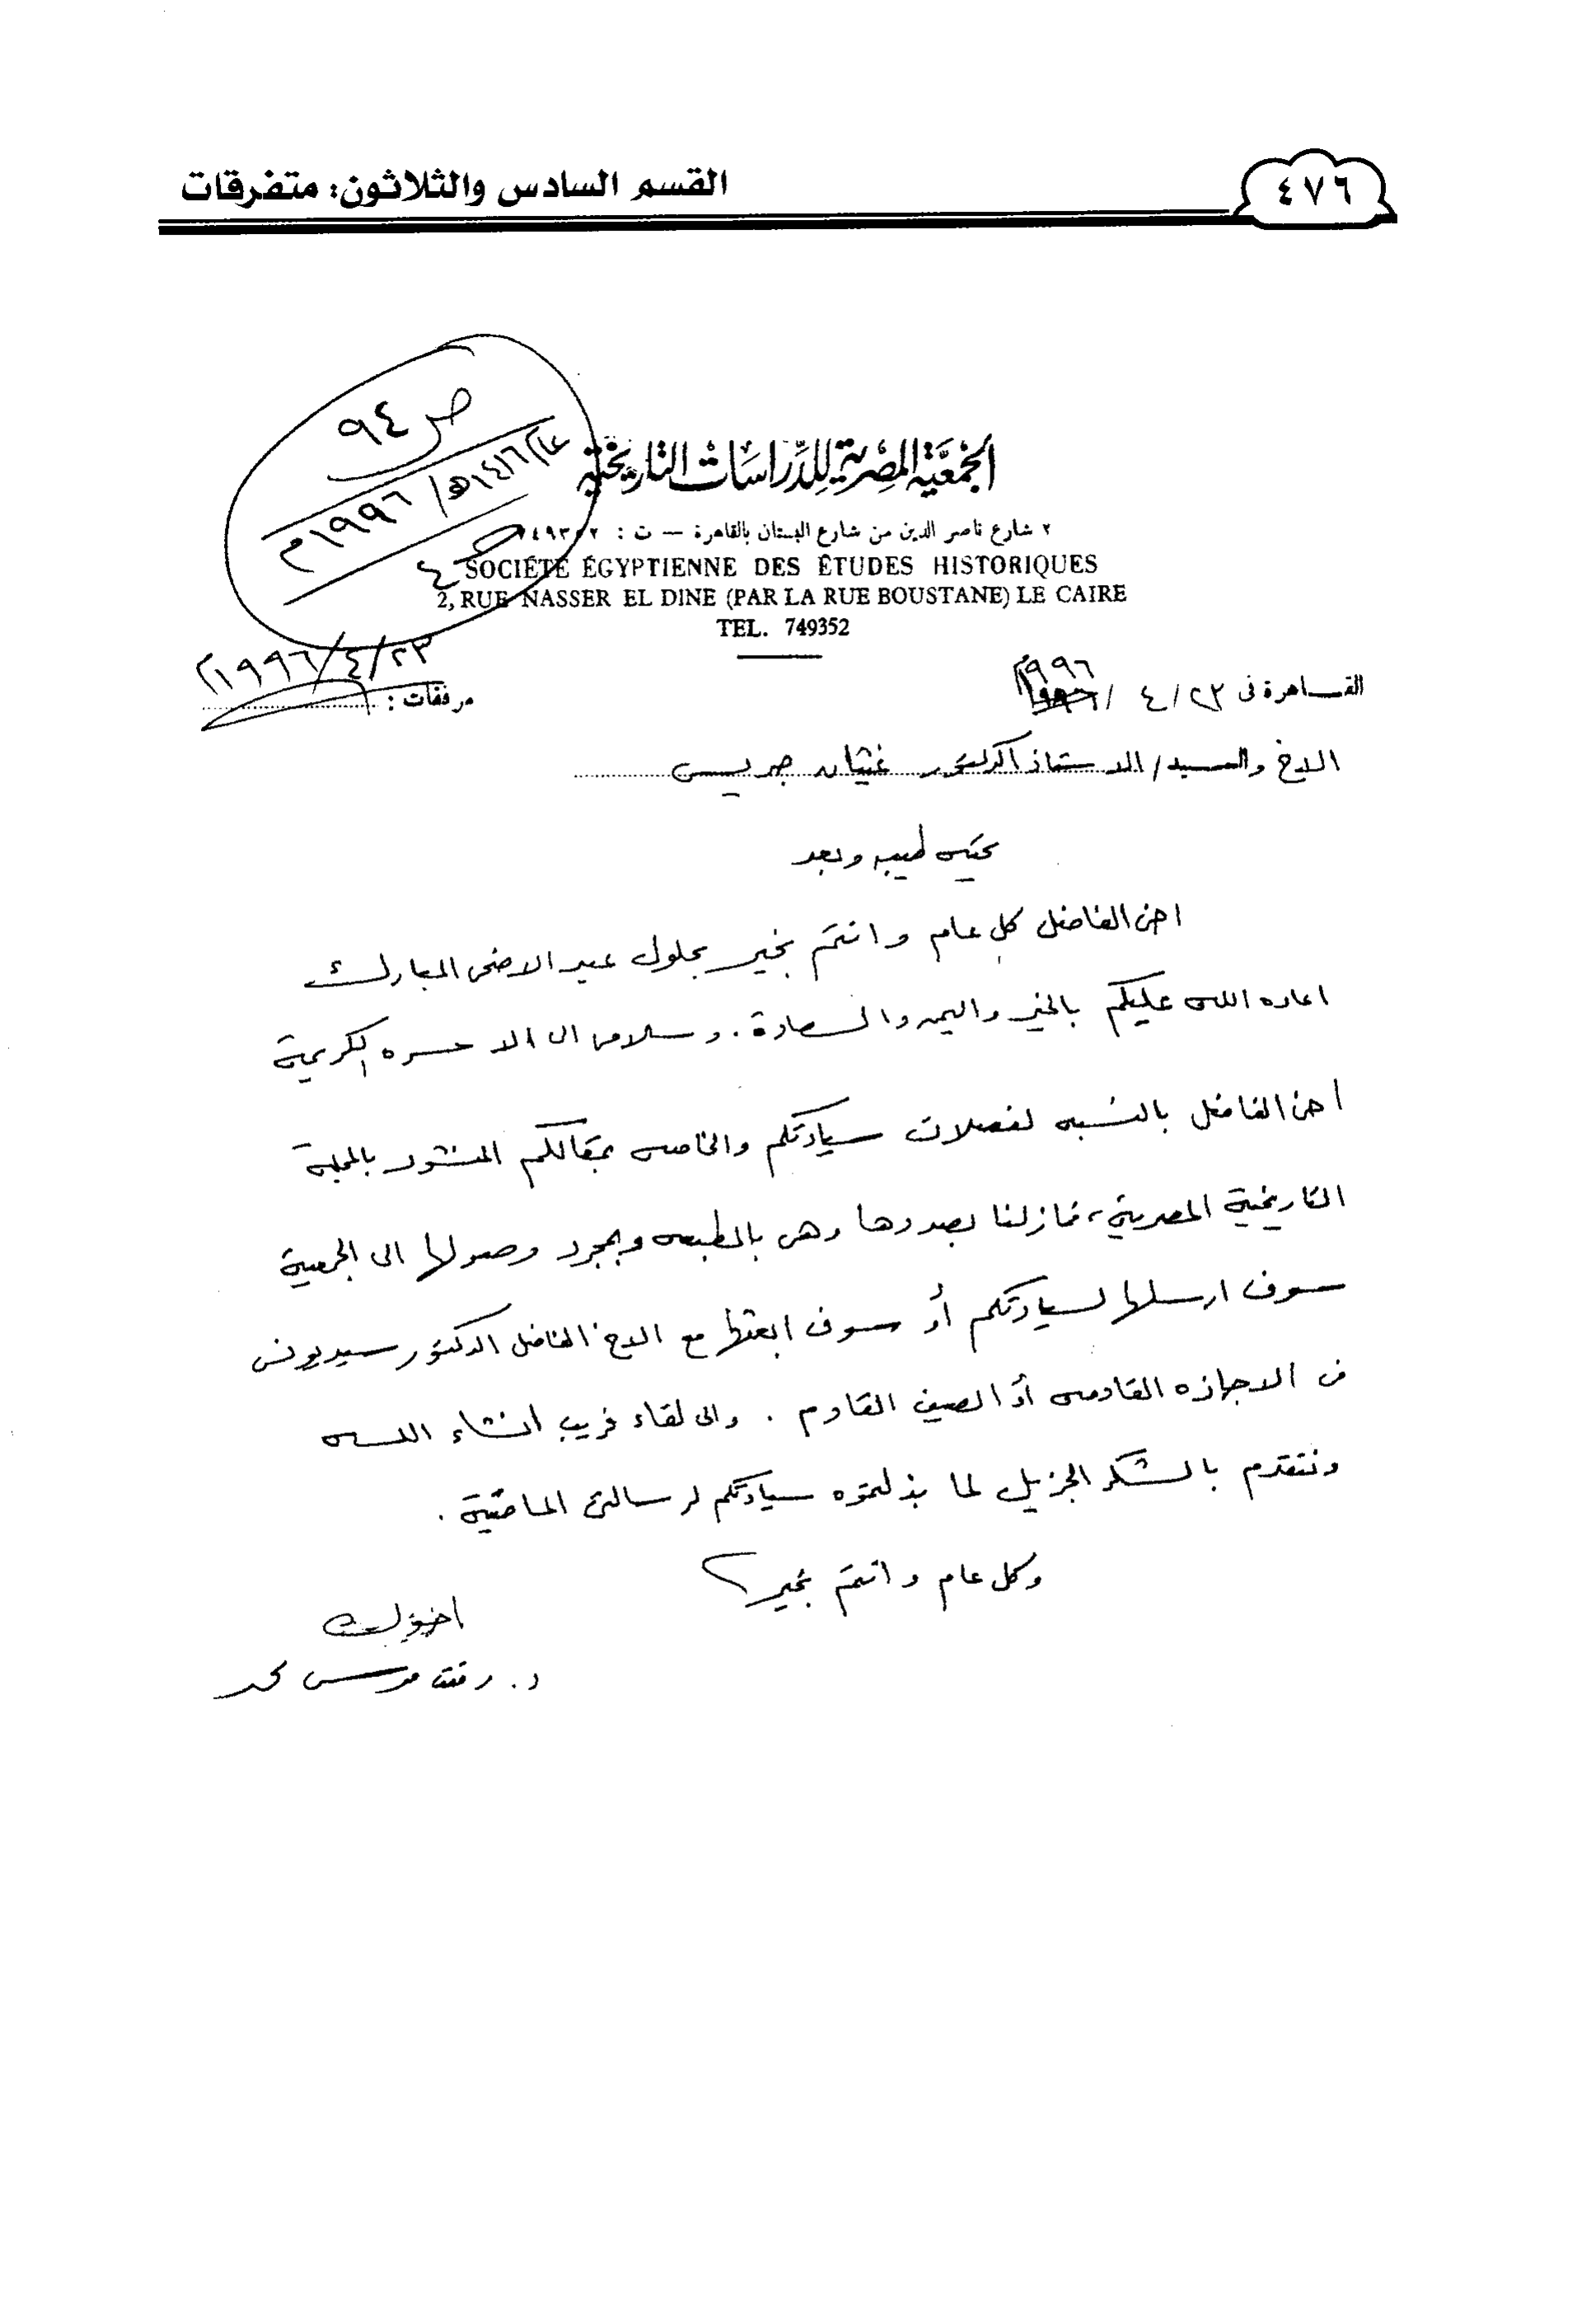 ٤٧٦
القسم السادس والثلاثون: متفرقات
ص ٩٤
١٤١٦هـ / ١٩٩٦م
٤
الجمعية المصرية للدراسات التاريخية
٢ شارع ناصر الدين من شارع البستان بالقاهرة — ت :
SOCIÉTÉ ÉGYPTIENNE DES ÉTUDES HISTORIQUES
2, RUE NASSER EL DINE (PAR LA RUE BOUSTANE) LE CAIRE
TEL. 749352
القاهرة فى ٢٣ / ٤ / ١٩٩٦
٢٣/٤/١٩٩٦م
مرفقات :
الاخ والسيد/ الاستاذ الدكتور غيثان جريس
تحيه طيبه وبعد
اخى الفاضل كل عام وانتم بخير بحلول عيد الاضحى المبارك
اعاده الله عليكم بالخير واليمن والسعادة . وسلامى الى الاسره الكريمة
أخى الفاضل بالنسبه لفصلات سيادتكم والخاصه بمقالكم المنشور بالمجلة
التاريخية المصرية ، فمازلنا بصددها وهى بالمطبعه وبمجرد وصولها الى الجمعية
سوف ارسلها لسيادتكم أو سوف ابعثها مع الاخ الفاضل الدكتور سيد يونس
فى الاجازه القادمه أو الصيف القادم . والى لقاء قريب انشاء الله
ونتقدم بالشكر الجزيل لما بذلتموه سيادتكم لرسالتى الماضية .
وكل عام وانتم بخير
اخوك
د. رفعت موسى محمد